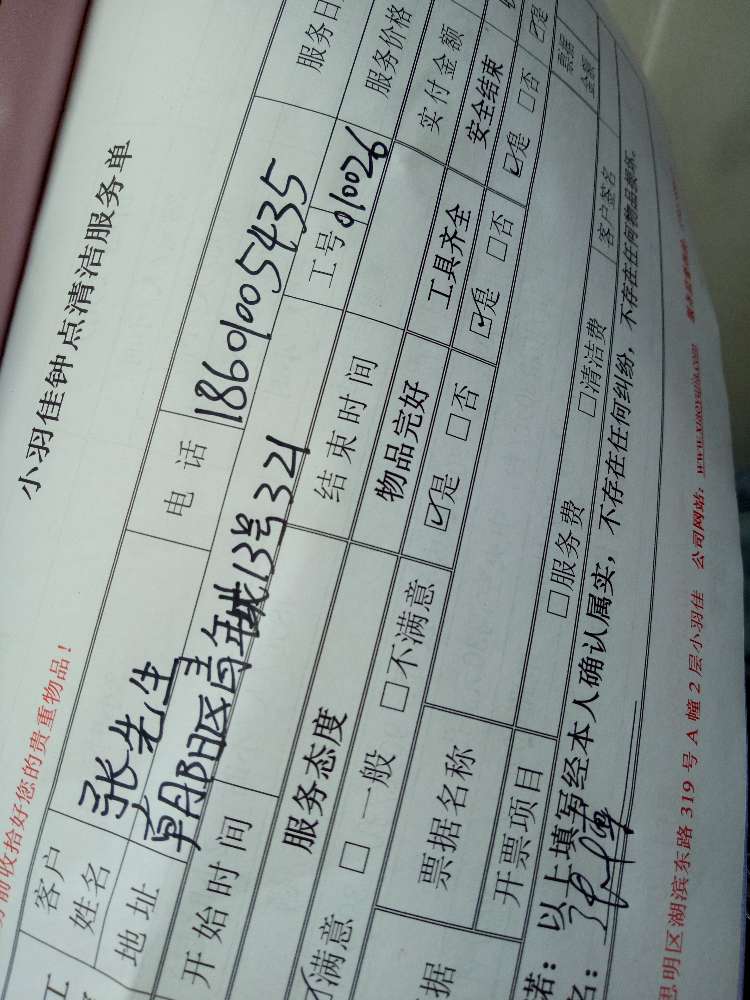 小羽佳钟点清洁服务单
前收拾好您的贵重物品！
客户姓名 张先生 电话 18601005435 服务日
地址 朝阳区青年城13号321 工号 010026 服务价格
开始时间 结束时间 实付金额
服务态度 物品完好 工具齐全 安全结束
☑满意 □一般 □不满意 ☑是 □否 ☑是 □否 ☑是 □否 ☑是
票据名称
开票项目 □服务费 □清洁费
诺：以上填写经本人确认属实，不存在任何纠纷，不存在任何物品损坏。
名： 客户签名
思明区湖滨东路 319 号 A 幢 2 层小羽佳 公司网站：www.xiaoyujia.com